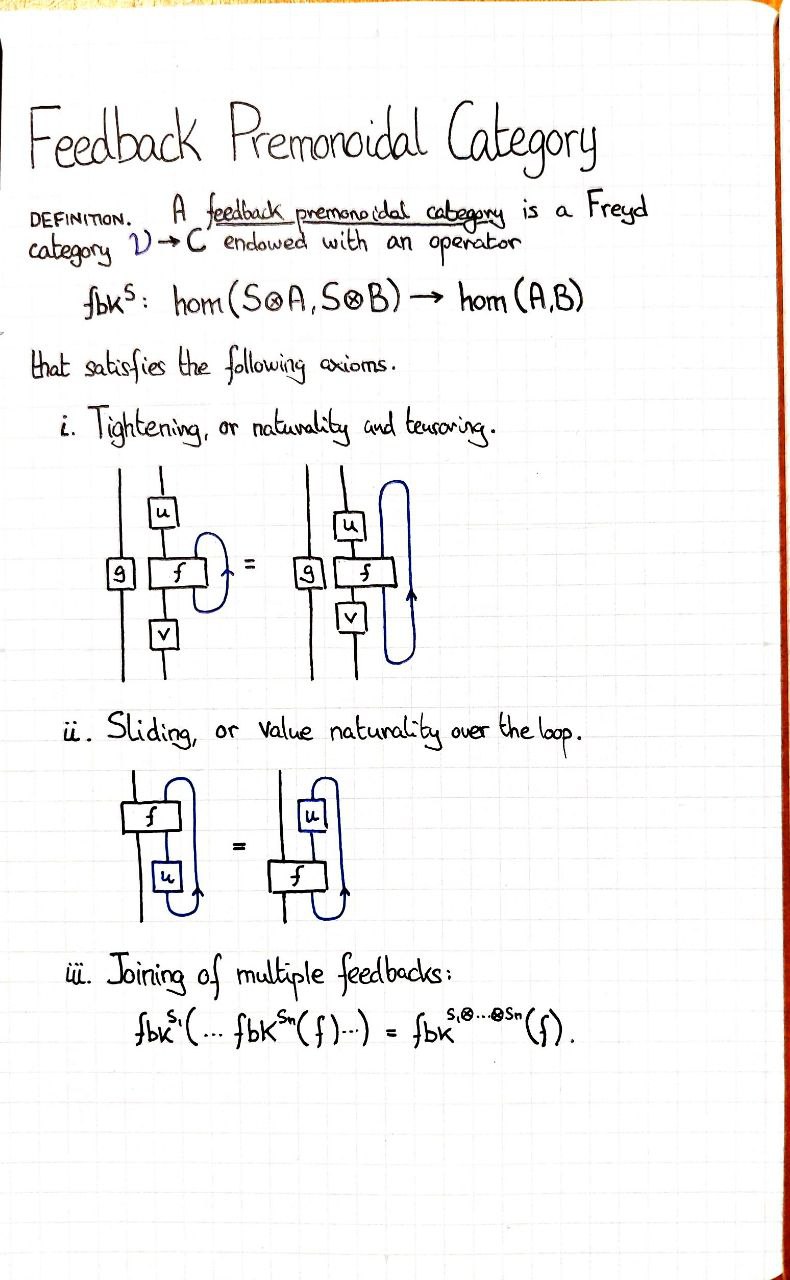 Feedback Premonoidal Category
DEFINITION. A feedback premonoidal category is a Freyd
category V→C endowed with an operator
fbkˢ: hom(S⊗A, S⊗B) → hom(A,B)
that satisfies the following axioms.
i. Tightening, or naturality and tensoring.
u u
g f = g f
v v
ii. Sliding, or value naturality over the loop.
f u
=
u f
iii. Joining of multiple feedbacks:
fbk^S₁(... fbk^Sn(f)...) = fbk^S₁⊗...⊗Sn(f).